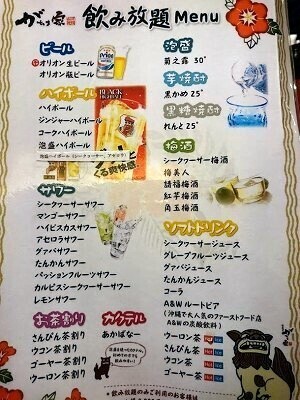 がっつり家 飲み放題 Menu
ビール
オリオン生ビール
オリオン瓶ビール
ハイボール
BLACK
HIGHBALL
ハイボール
ジンジャーハイボール
コークハイボール
泡盛ハイボール
泡盛ハイボール(シークァーサー、アセロラ)
くる爽快感
サワー
シークァーサーサワー
マンゴーサワー
ハイビスカスサワー
アセロラサワー
グァバサワー
たんかんサワー
パッションフルーツサワー
カルピスシークァーサーサワー
レモンサワー
お茶割り
さんぴん茶割り
ウコン茶割り
ゴーヤー茶割り
ウーロン茶割り
カクテル
あかばなー
泡盛
菊之露 30°
芋焼酎
黒かめ 25°
黒糖焼酎
れんと 25°
梅酒
シークヮーサー梅酒
梅美人
請福梅酒
紅芋梅酒
角玉梅酒
ソフトドリンク
シークァーサージュース
グレープフルーツジュース
グァバジュース
たんかんジュース
コーラ
A&W ルートビア
(沖縄で大人気のファーストフード店
A&Wの炭酸飲料)
ウーロン茶 Hot Ice
さんぴん茶 Hot Ice
ウコン茶 Hot Ice
ゴーヤー茶 Hot Ice
*飲み放題のみご利用のお客様は